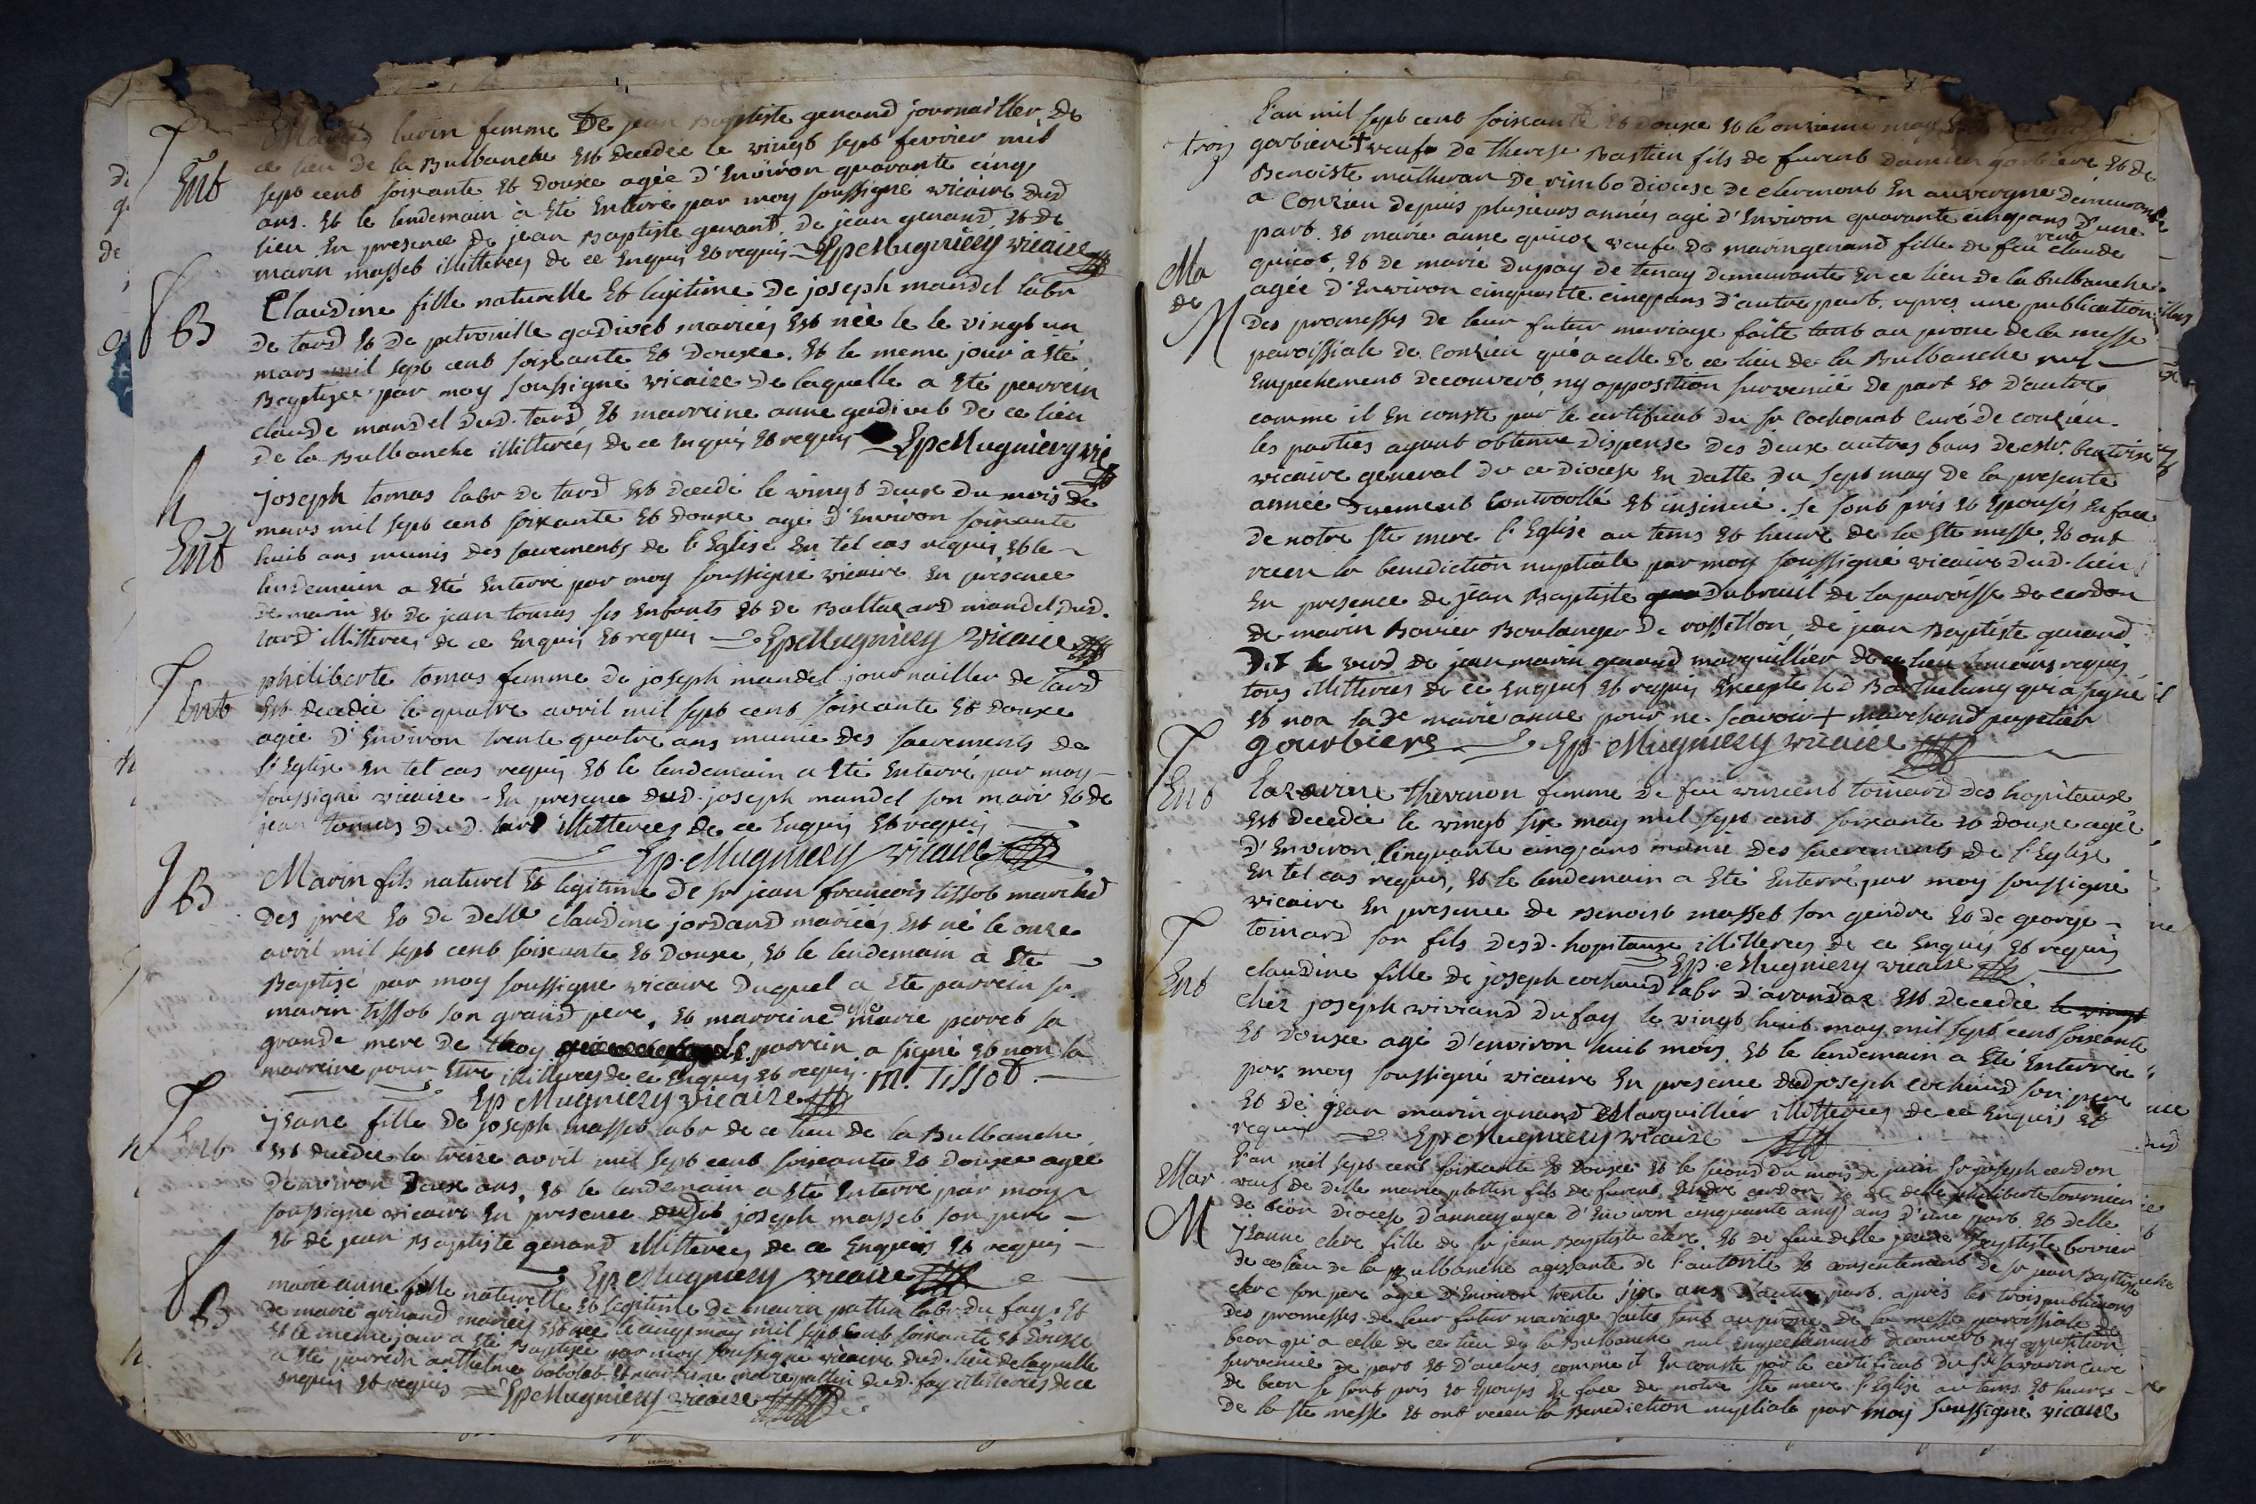 lurin femme De jean Baptiste genand journailler de
Ent
ce lieu de la Bulbanche Est decedée le vingt sept fevrier mil
sept cent soixante Et douxe agée d'Environ quarante cinq
ans. Et le lendemain à Eté Enterré par moy soussigné vicaire dud
lieu En presence de jean Baptiste genand, De jean genand Et de
marin masset illitterés de ce Enquis Et requis Ep Mugniery vicaire
B
Claudine fille naturelle Et legitime De joseph mandel labr
De tard Et De petronille godivet mariés Est née le le vingt un
mars mil sept cent soixante Et Douxe. Et le meme jour à Eté
Baptizée par moy soussigné vicaire De laquelle a Eté parrein
claude mandel dud. tard Et marreine anne godivet De ce lieu
De la Bulbanche illitterés de ce Enquis Et requis Ep Mugniery vic
joseph tomas labr de tard Est decedé le vingt deux du mois de
mars mil sept cent soixante Et douxe agé d'Environ soixante
Ent
huit ans munis des sacrements de l'Eglise En tel cas requis Et le
lendemain a Eté Enterré par moy soussigné vicaire En présence
de marin Et de jean tomas ses Enfants Et de Baltazard mandel dud.
tard illitterés de ce Enquis Et requis Ep Mugniery vicaire
philiberte tomas femme de joseph mandel journailler de tard
Ent
Est decedée le quatre avril mil sept cent soixante Et douxe
agée d'Environ trente quatre ans munie des sacrements de
l'Eglise En tel cas requis Et le lendemain a Eté Enterré par moy
soussigné vicaire En presence dud. joseph mandel son mari Et de
jean tomas Dud. tard illitterés de ce Enquis Et requis
Ep. Mugniery vicaire
B
Marin fils naturel Et legitime De sr jean francois tissot marchd
Des près Et De Delle claudine jordand mariés Est né le onze
avril mil sept cent soixante Et Douxe, Et le lendemain à Eté
Baptisé par moy soussigné vicaire Duquel a Eté parrein sr
marin tissot son grand pere, Et marreine delle marie perret sa
grande mere de thoy parrein a signé Et non la
marreine pour Etre illitterés de ce Enquis Et requis. M. Tissot
Ep Mugniery vicaire
jeane fille De joseph masset labr de ce lieu de la Bulbanche
Ent
Est decedée le treize avril mil sept cent soixante Et Douxe agée
D'environ Deux ans, Et le lendemain a Eté Enterré par moy
soussigné vicaire En presence dudit joseph masset son pere
Et de jean Baptiste genand illitterés de ce Enquis Et requis
Ep Mugniery vicaire
B
marie anne fille naturelle Et legitime de marin pattin labr. du fay Et
de marie genand mariés Est née le cinq may mil sept cent soixante Et douxe
Et le meme jour a Eté Baptizée par moy soussigné vicaire dud. lieu de laquelle
a Eté parrein anthelme Et marreine marie pattin dud. fay illitterés de ce
Enquis Et requis Ep Mugniery vicaire
l'an mil sept cent soixante Et douxe Et le onzieme may
trois
gorbiere + veuf De therese Bastien fils de furent damien gorbiere Et de
Benoiste malheran De vimbo diocese de clermont En auvergne demeurant
a Conzieu depuis plusieurs années agé d'Environ quarante cinq ans d'une
part. Et marie anne quicot veufe de marin genand fille de feu claude
Ma
quicot, Et de marie dupay de tenay demeurante En ce lieu de la bulbanche
de
agée d'Environ cinquante cinq ans d'autre part. apres une publication
M
Des promesses de leur futur mariage faite tant au prone de la messe
paroissiale de Conzieu que a celle de ce lieu de la Bulbanche nul
Empechement decouvert ny opposition survenüe de part Et d'autre
comme il En conste par le certificat du sr Cochonat Curé de conzieu.
les parties ayant obtenue dispense Des deux autres bans
vicaire general de ce diocese En datte du sept may de la presente
année duement Controollé Et insinué. se sont pris Et Epousés En face
De notre ste mere l'Eglise au tems Et heure de la ste messe, Et ont
receu la benediction nuptiale par moy soussigné vicaire dud. lieu
En presence de jean Baptiste Dubreuil de la paroisse de cerdon
de marin Bovier Boulanger De rossillon, de jean Baptiste genand
Dit le de jean marin genand marguillier de ce lieu temoins requis
tous illitteres de ce Enquis Et requis Excepté led qui a signé
Et non lade marie anne pour ne scavoir + marchand papetier
gourbiere Ep. Mugniery vicaire
Ent
thevenon femme de feu vincent toinard des hopitaux
Est decedée le vingt six may mil sept cent soixante Et douxe agée
d'Environ Cinquante cinq ans munie des sacrements de l'Eglise
En tel cas requis, Et le lendemain a Eté Enterré par moy soussigné
vicaire En presence de Benoist masset son gendre Et de george
toinard son fils desd. hopitaux illitterés de ce Enquis Et requis
Ep. Mugniery vicaire
Ent
claudine fille de joseph cochand labr d'arandaz Est decedée le vingt
chez joseph viviand du fay le vingt huit may mil sept cent soixante
Et douxe agé d'environ huit mois Et le lendemain a Eté Enterrée
par moy soussigné vicaire En presence dud joseph cochand son pere
Et de jean marin genand Marguillier illitterés de ce Enquis Et
requis Ep Mugniery vicaire
Mar
l'an mil sept cent soixante Et douxe Et le second du mois de juin sr joseph cerdon
veuf de dlle marie plottin fils de furent André cerdon Et de delle philiberte tournier
M
de béon diocese d'annecy agé d'Environ cinquante cinq ans d'une part. Et delle
jeanne clerc fille de sr jean Baptiste clerc Et de feue delle jeanne Baptiste bovier
de ce lieu de la Bulbanche agissante de l'autorité Et consentement de sr jean Baptiste
clerc son pere agée d'Environ trente six ans d'autre part. après les trois publications
des promesses de leur futur mariage faites tant au prone de la messe paroissiale de
beon qui a celle de ce lieu de la bulbanche nul empechement decouvert ny opposition
survenue de part Et d'autres comme il En conste par le certificat du sr savarin curé
de beon se sont pris Et Epousés En face de notre ste mere l'Eglise au tems Et heure
de la ste messe Et ont receu la Benediction nuptiale par moy soussigné vicaire